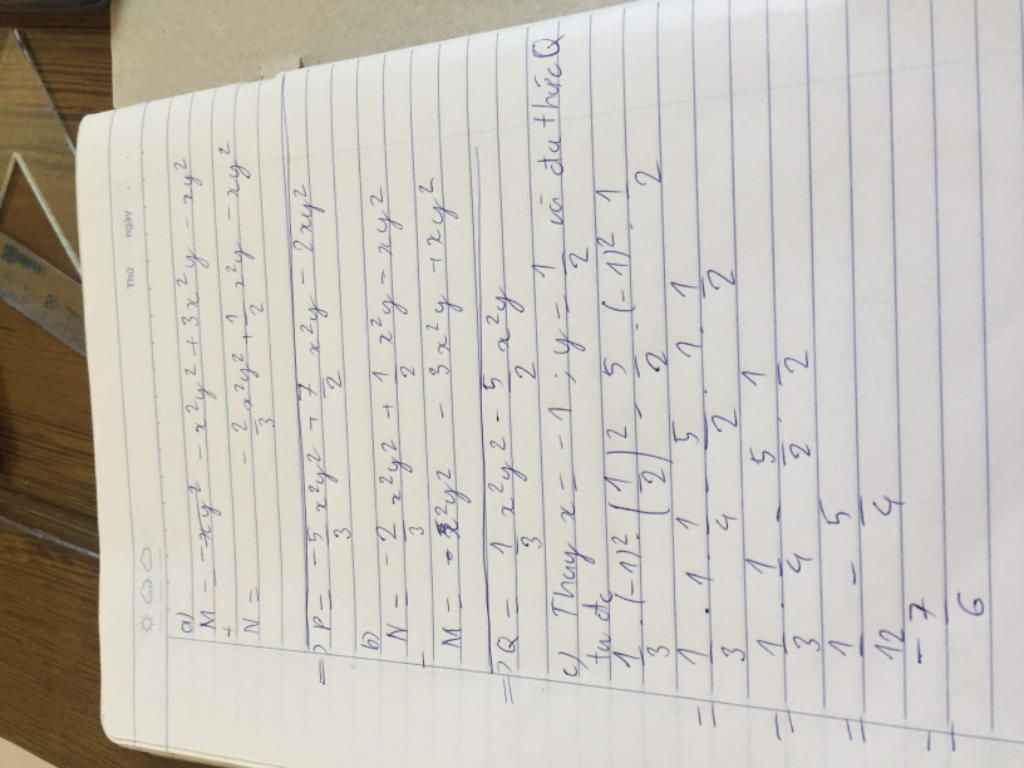 Thứ ngày
a)
M = -xy² - x²y² + 3x²y - xy²
+
N = - 2/3 x²y² + 1/2 x²y - xy²
=> P = -5/3 x²y² + 7/2 x²y - 2xy²
b)
N = -2/3 x²y² + 1/2 x²y - xy²
-
M = - x²y² - 3x²y + xy²
=> Q = 1/3 x²y² - 5/2 x²y
c) Thay x = -1 ; y = 1/2 vào đa thức Q
ta đc
1/3 . (-1)² . (1/2)² - 5/2 . (-1)² . 1/2
= 1/3 . 1 . 1/4 - 5/2 . 1 . 1/2
= 1/3 . 1/4 - 5/2 . 1/2
= 1/12 - 5/4
= -7/6